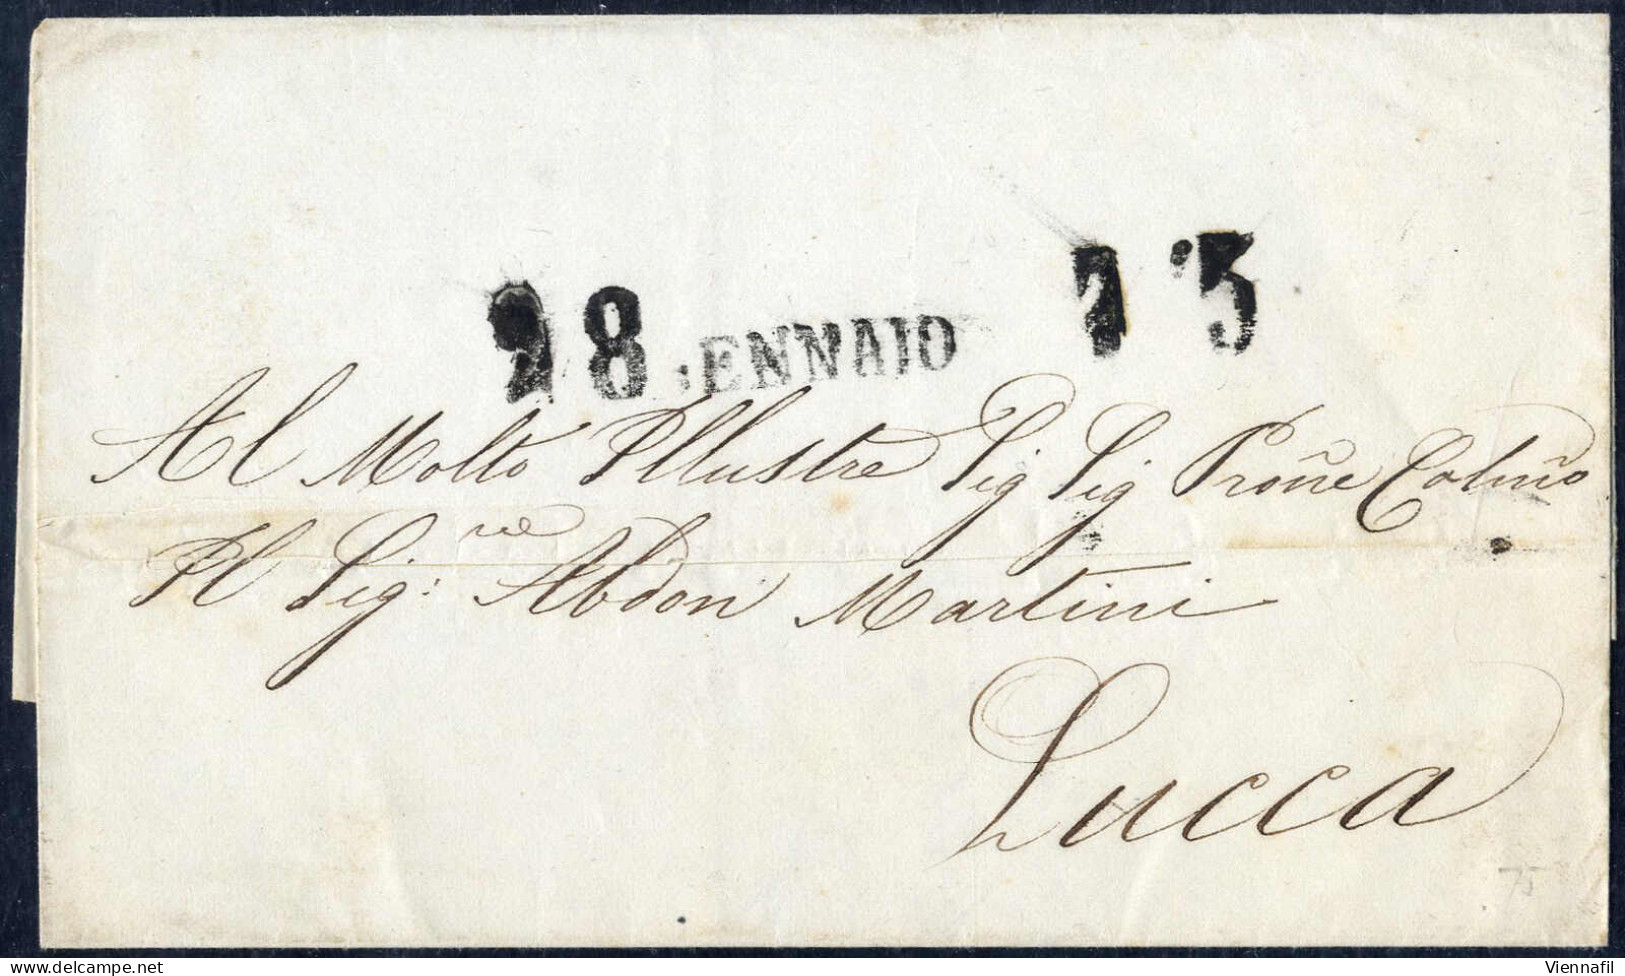 28 ENNAIO
Al Molto Illustre Sig Sig Prone Colmo
Il Sig: re Abdon Martini
Lucca
75
delcampe.net
Viennafil